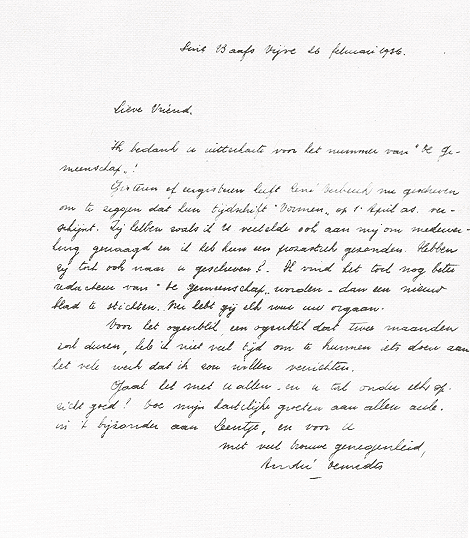 Sint Baafs Vijve 26 februari 1936.
Lieve Vriend,
Ik bedank u uiterharte voor het nummer van "De Ge-
meenschap"!
Gisteren of eergisteren heeft René Verbeeck me geschreven
om te zeggen dat hun tijdschrift "Vormen" op 1 April as. ver-
schijnt. Zij hebben zoals ik u vertelde ook aan mij om medewer-
king gevraagd en ik heb hun een prozastuk gezonden. Hebben
zij tot ook naar u geschreven? Ik vind het toch nog beter
redacteur van "De Gemeenschap" worden - dan een nieuw
blad te stichten. Nu hebt gij elk van uw orgaan.
Voor het ogenblik, een ogenblik dat twee maanden
zal duren, heb ik niet veel tijd om te kunnen iets doen aan
het vele werk dat ik zou willen verrichten.
Gaat het met u allen en u tot onder elk op-
zicht goed? Doe mijn hartelijke groeten aan allen
in 't bijzonder aan Leentje, en voor u
met veel trouwe genegenheid,
André Demedts